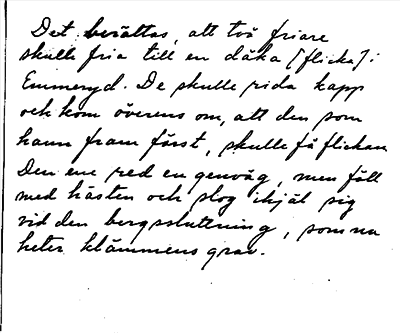 Det berättas, att två friare
skulle fria till en däka [flicka] i
Emmeryd. De skulle rida kapp
och kom överens om, att den som
hann fram först, skulle få flickan
Den ene red en genväg, men föll
med hästen och slog ihjäl sig
vid den bergssluttning, som nu
heter klämmens grav.